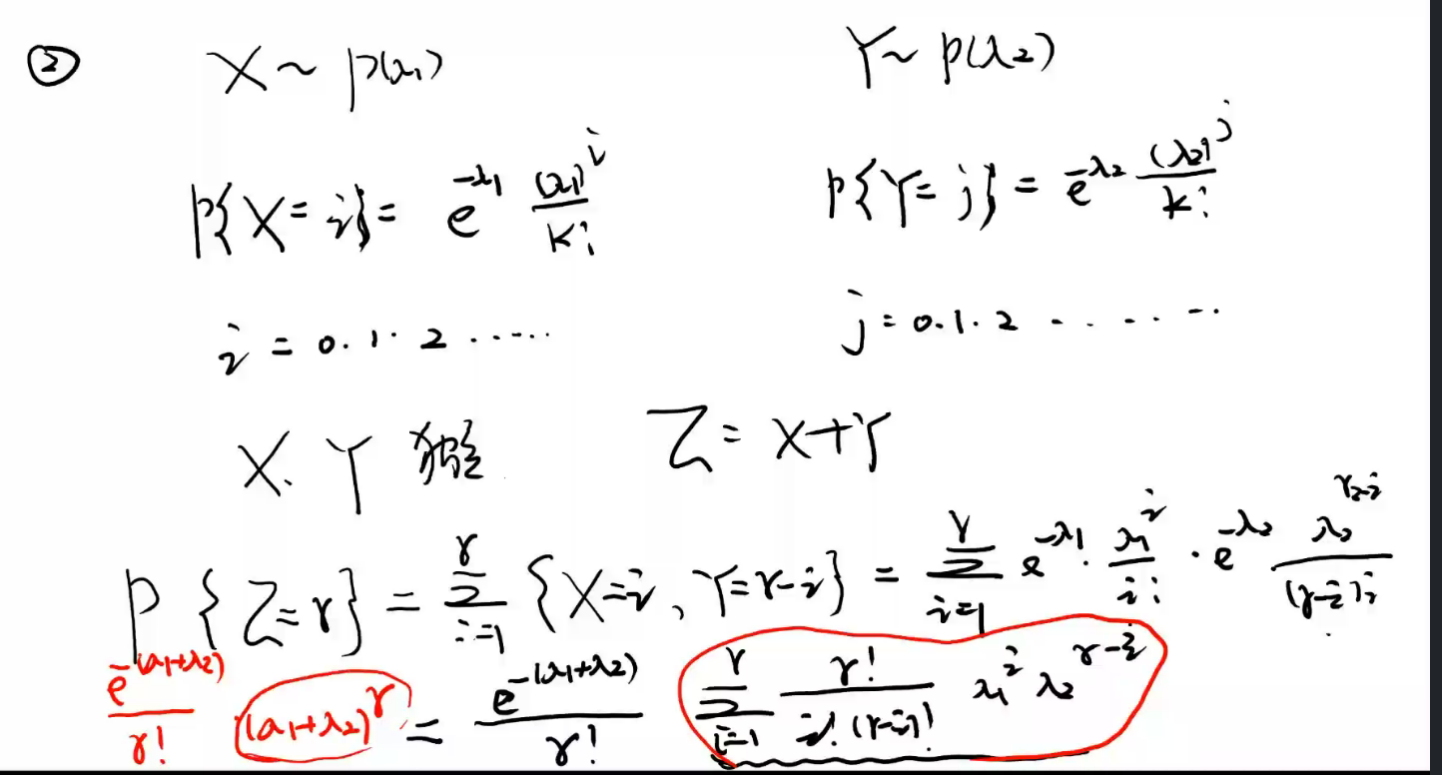 ② X ~ P(λ₁) Y ~ P(λ₂)
P{X = i} = e^{-λ₁} (λ₁)^i / k! P{Y = j} = e^{-λ₂} (λ₂)^j / k!
i = 0.1.2 ..... j = 0.1.2 ......
X. Y 独立 Z = X+Y
P{Z=r} = Σ_{i=1}^{r} {X=i, Y=r-i} = Σ_{i=1}^{r} e^{-λ₁} · λ₁^i / i! · e^{-λ₂} λ₂^{r-i} / (r-i)!
e^{-(λ₁+λ₂)} / r! (λ₁+λ₂)^r = e^{-(λ₁+λ₂)} / r! Σ_{i=1}^{r} r! / i!(r-i)! λ₁^i λ₂^{r-i}